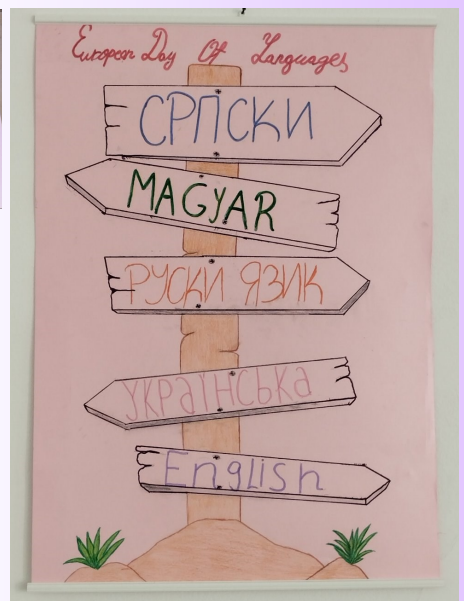 European Day Of Languages
СРПСКИ
MAGYAR
РУСКИ ЯЗИК
УКРАЇНСЬКА
English